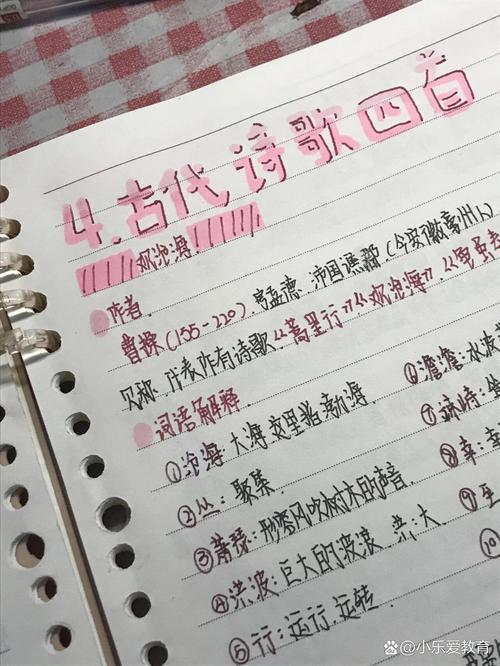 4.古代诗歌四首
观沧海
作者
曹操(155-220).字孟德.沛国谯郡(今安徽亳州人)
代表作有诗歌《蒿里行》《观沧海》《
词语解释
①沧海:大海.这里指勃海
②丛:聚集.
③萧瑟:形容风吹树木的声音.
④洪波:巨大的波浪.洪:大
⑤行:运行.运转.
⑥澹澹:水波
⑦竦峙:
⑧幸:
⑨至
⑩
小乐爱教育